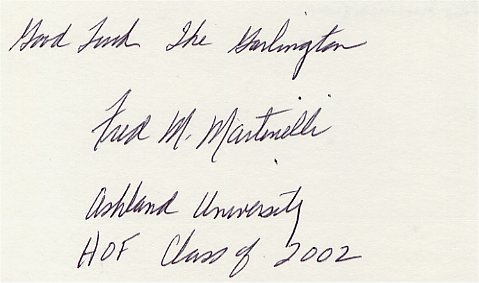 Good Luck The Garlington
Fred M. Martinelli
Ashland University
HOF Class of 2002